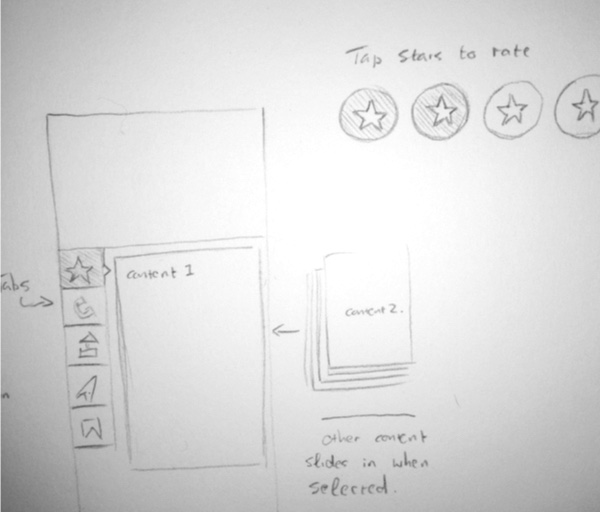 Tap stars to rate
content 1
content 2.
other content
slides in when
selected.